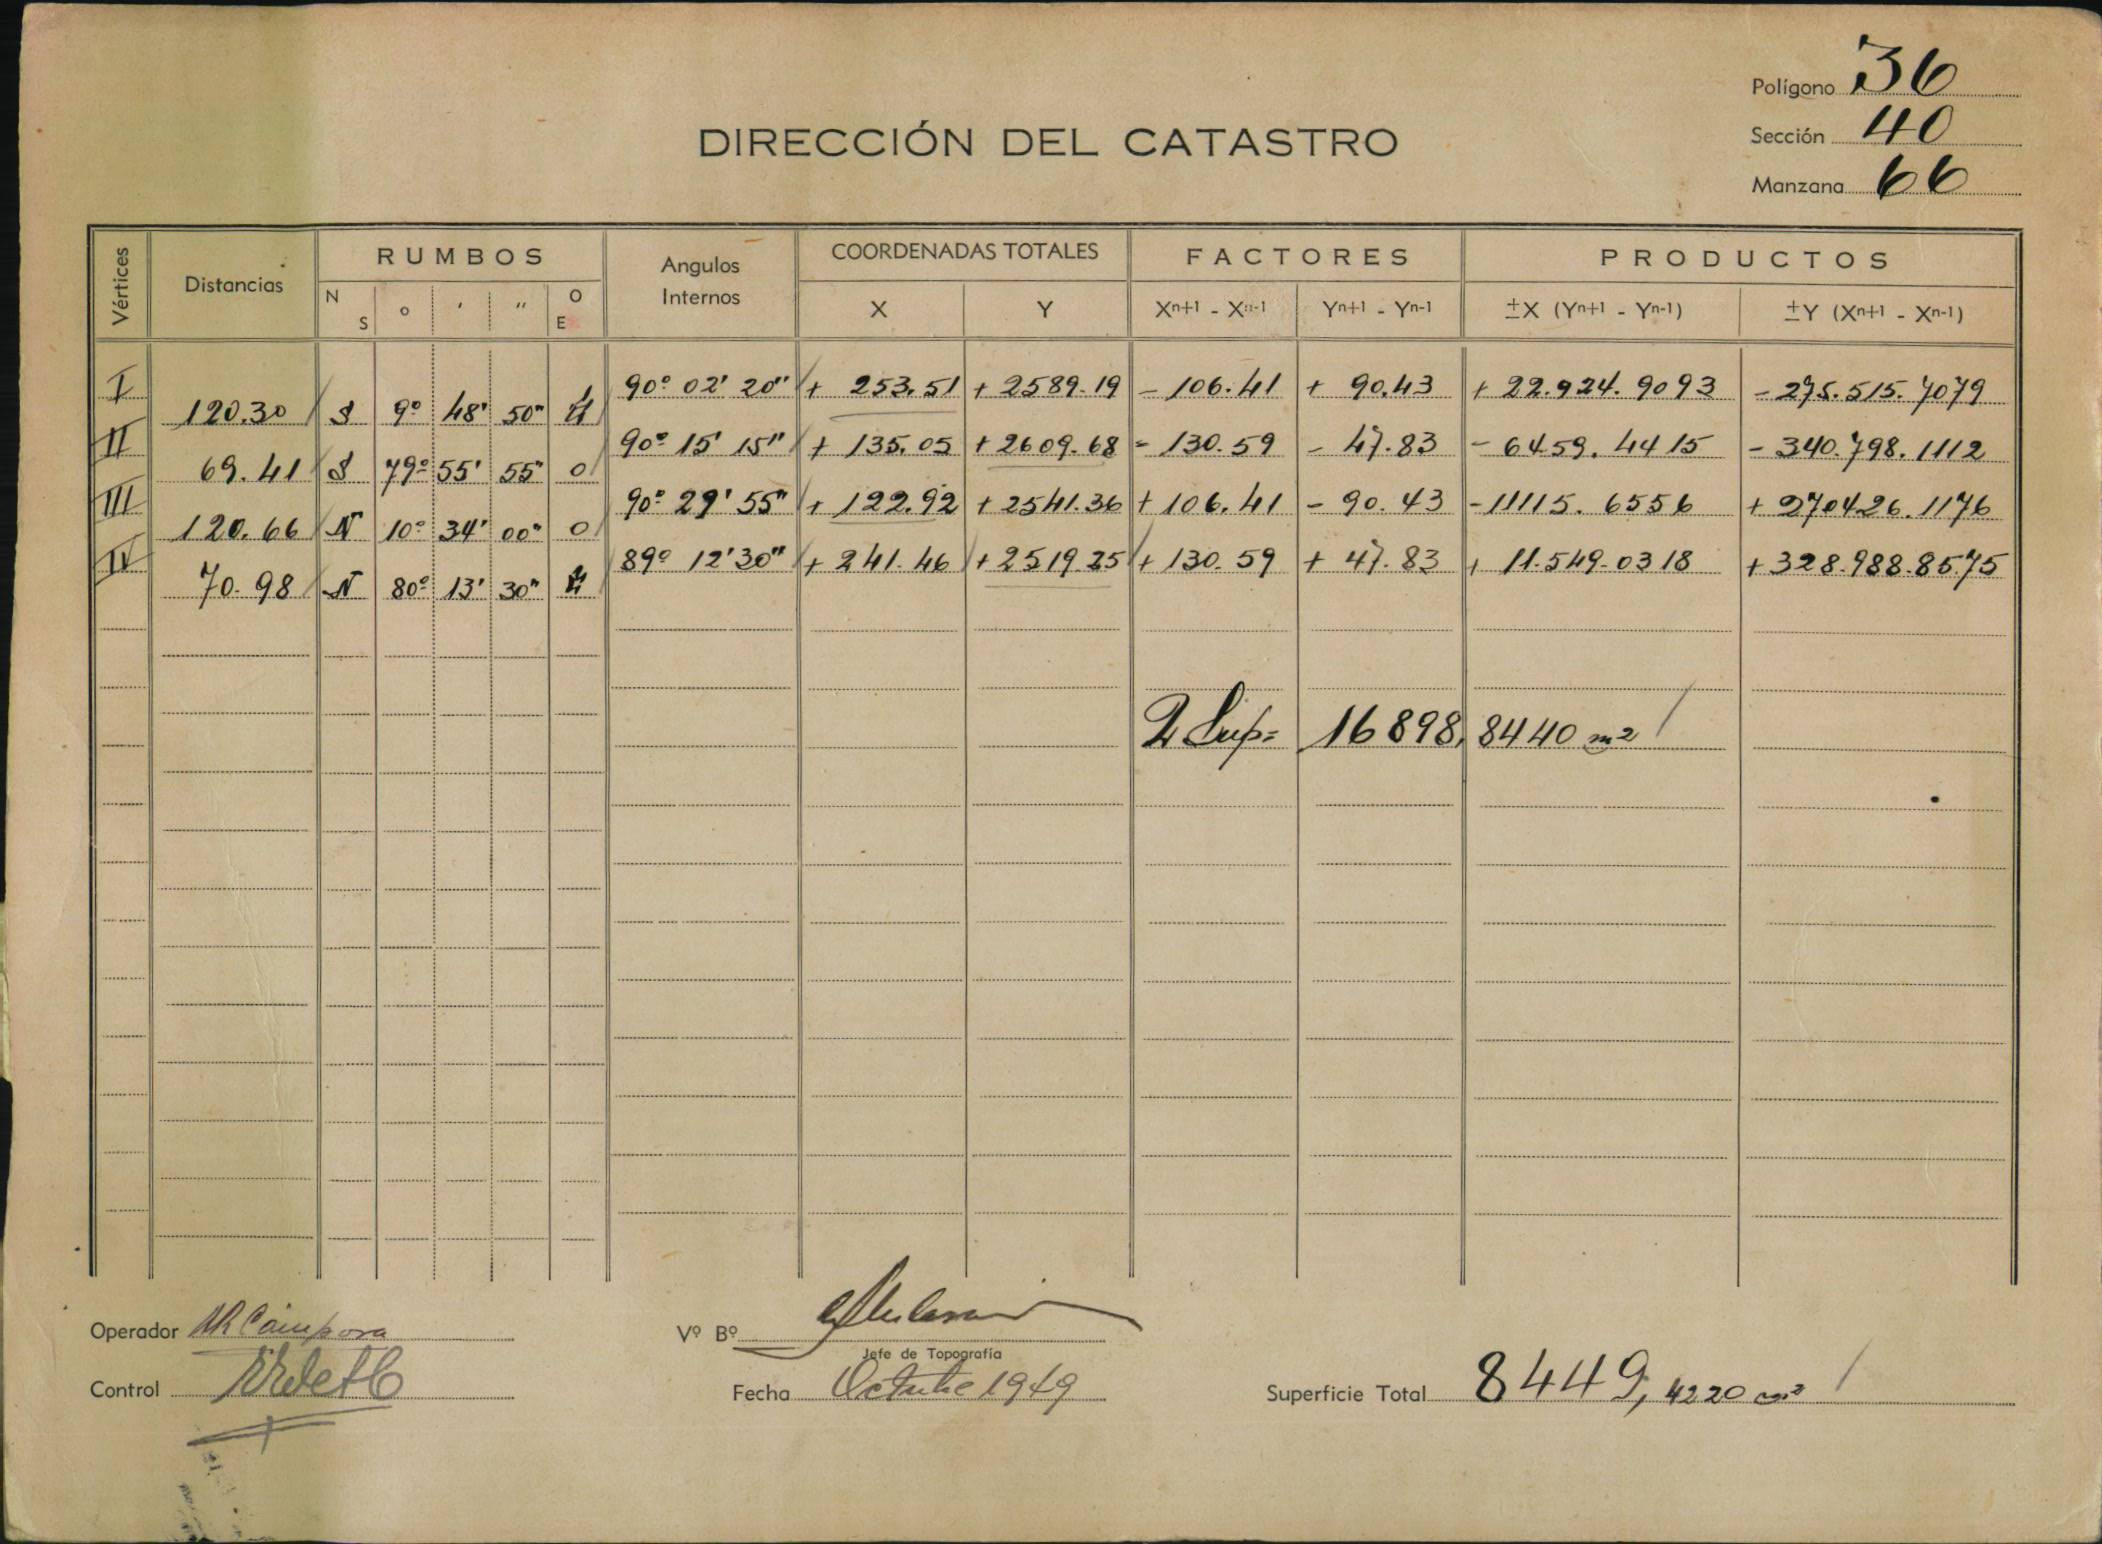 Polígono 36
DIRECCIÓN DEL CATASTRO
Sección 40
Manzana 66
Vértices Distancias RUMBOS Angulos Internos COORDENADAS TOTALES FACTORES PRODUCTOS
N S º ' '' O E X Y Xn+1 - Xn-1 Yn+1 - Yn-1 ±X (Yn+1 - Yn-1) ±Y (Xn+1 - Xn-1)
I 90º 02' 20" + 253.51 + 2589.19 - 106.41 + 90.43 + 22.924.9093 - 275.515.7079
120.30 S 9º 48' 50"
II 90º 15' 15" + 135.05 + 2609.68 - 130.59 - 47.83 - 6459.4415 - 340.798.1112
69.41 S 79º 55' 55" O
III 90º 29' 55" + 122.92 + 2541.36 + 106.41 - 90.43 - 11115.6556 + 270426.1176
120.66 N 10º 34' 00" O
IV 89º 12' 30" + 241.46 + 2519.25 + 130.59 + 47.83 + 11.549.0318 + 328.988.8575
70.98 N 80º 13' 30"
2 Sup= 16898,8440 m2
Operador
Vº Bº
Jefe de Topografía
Control
Fecha Octubre 1949
Superficie Total 8449,4220 m2